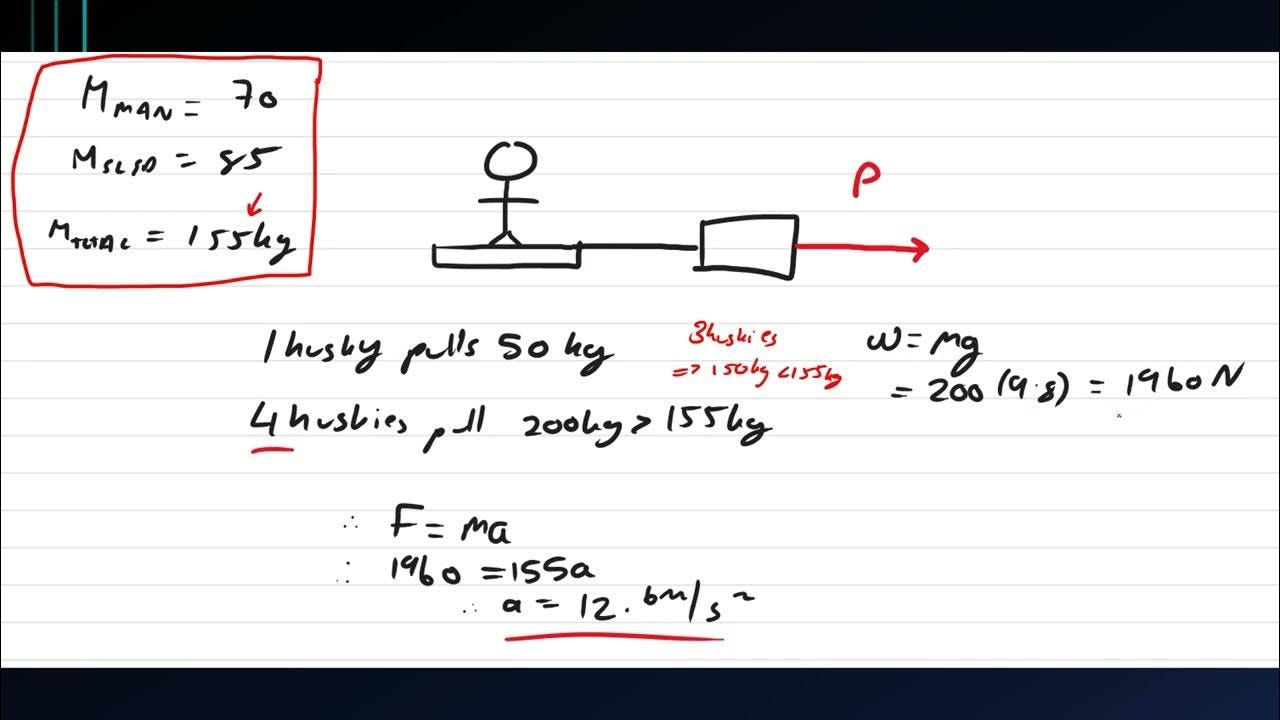 M MAN = 70
M SLED = 85
M TOTAL = 155kg
P
1 husky pulls 50 kg
3 huskies
=> 150kg < 155kg
4 huskies pull 200kg > 155kg
W = mg
= 200 (9.8) = 1960 N
∴ F = ma
∴ 1960 = 155a
∴ a = 12.6m/s²